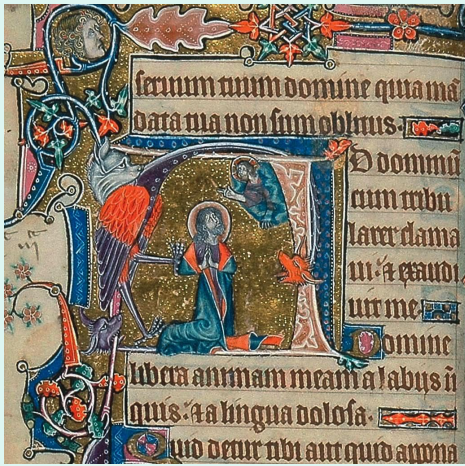 seruum tuum domine quia ma
data tua non sum oblitus.
AD dominū
cum tribu
larer clama
ui: & exaudi
uit me.
Domine
libera animam meam a labiis ī
quis: & a lingua dolosa.
Quid detur tibi aut quid appona